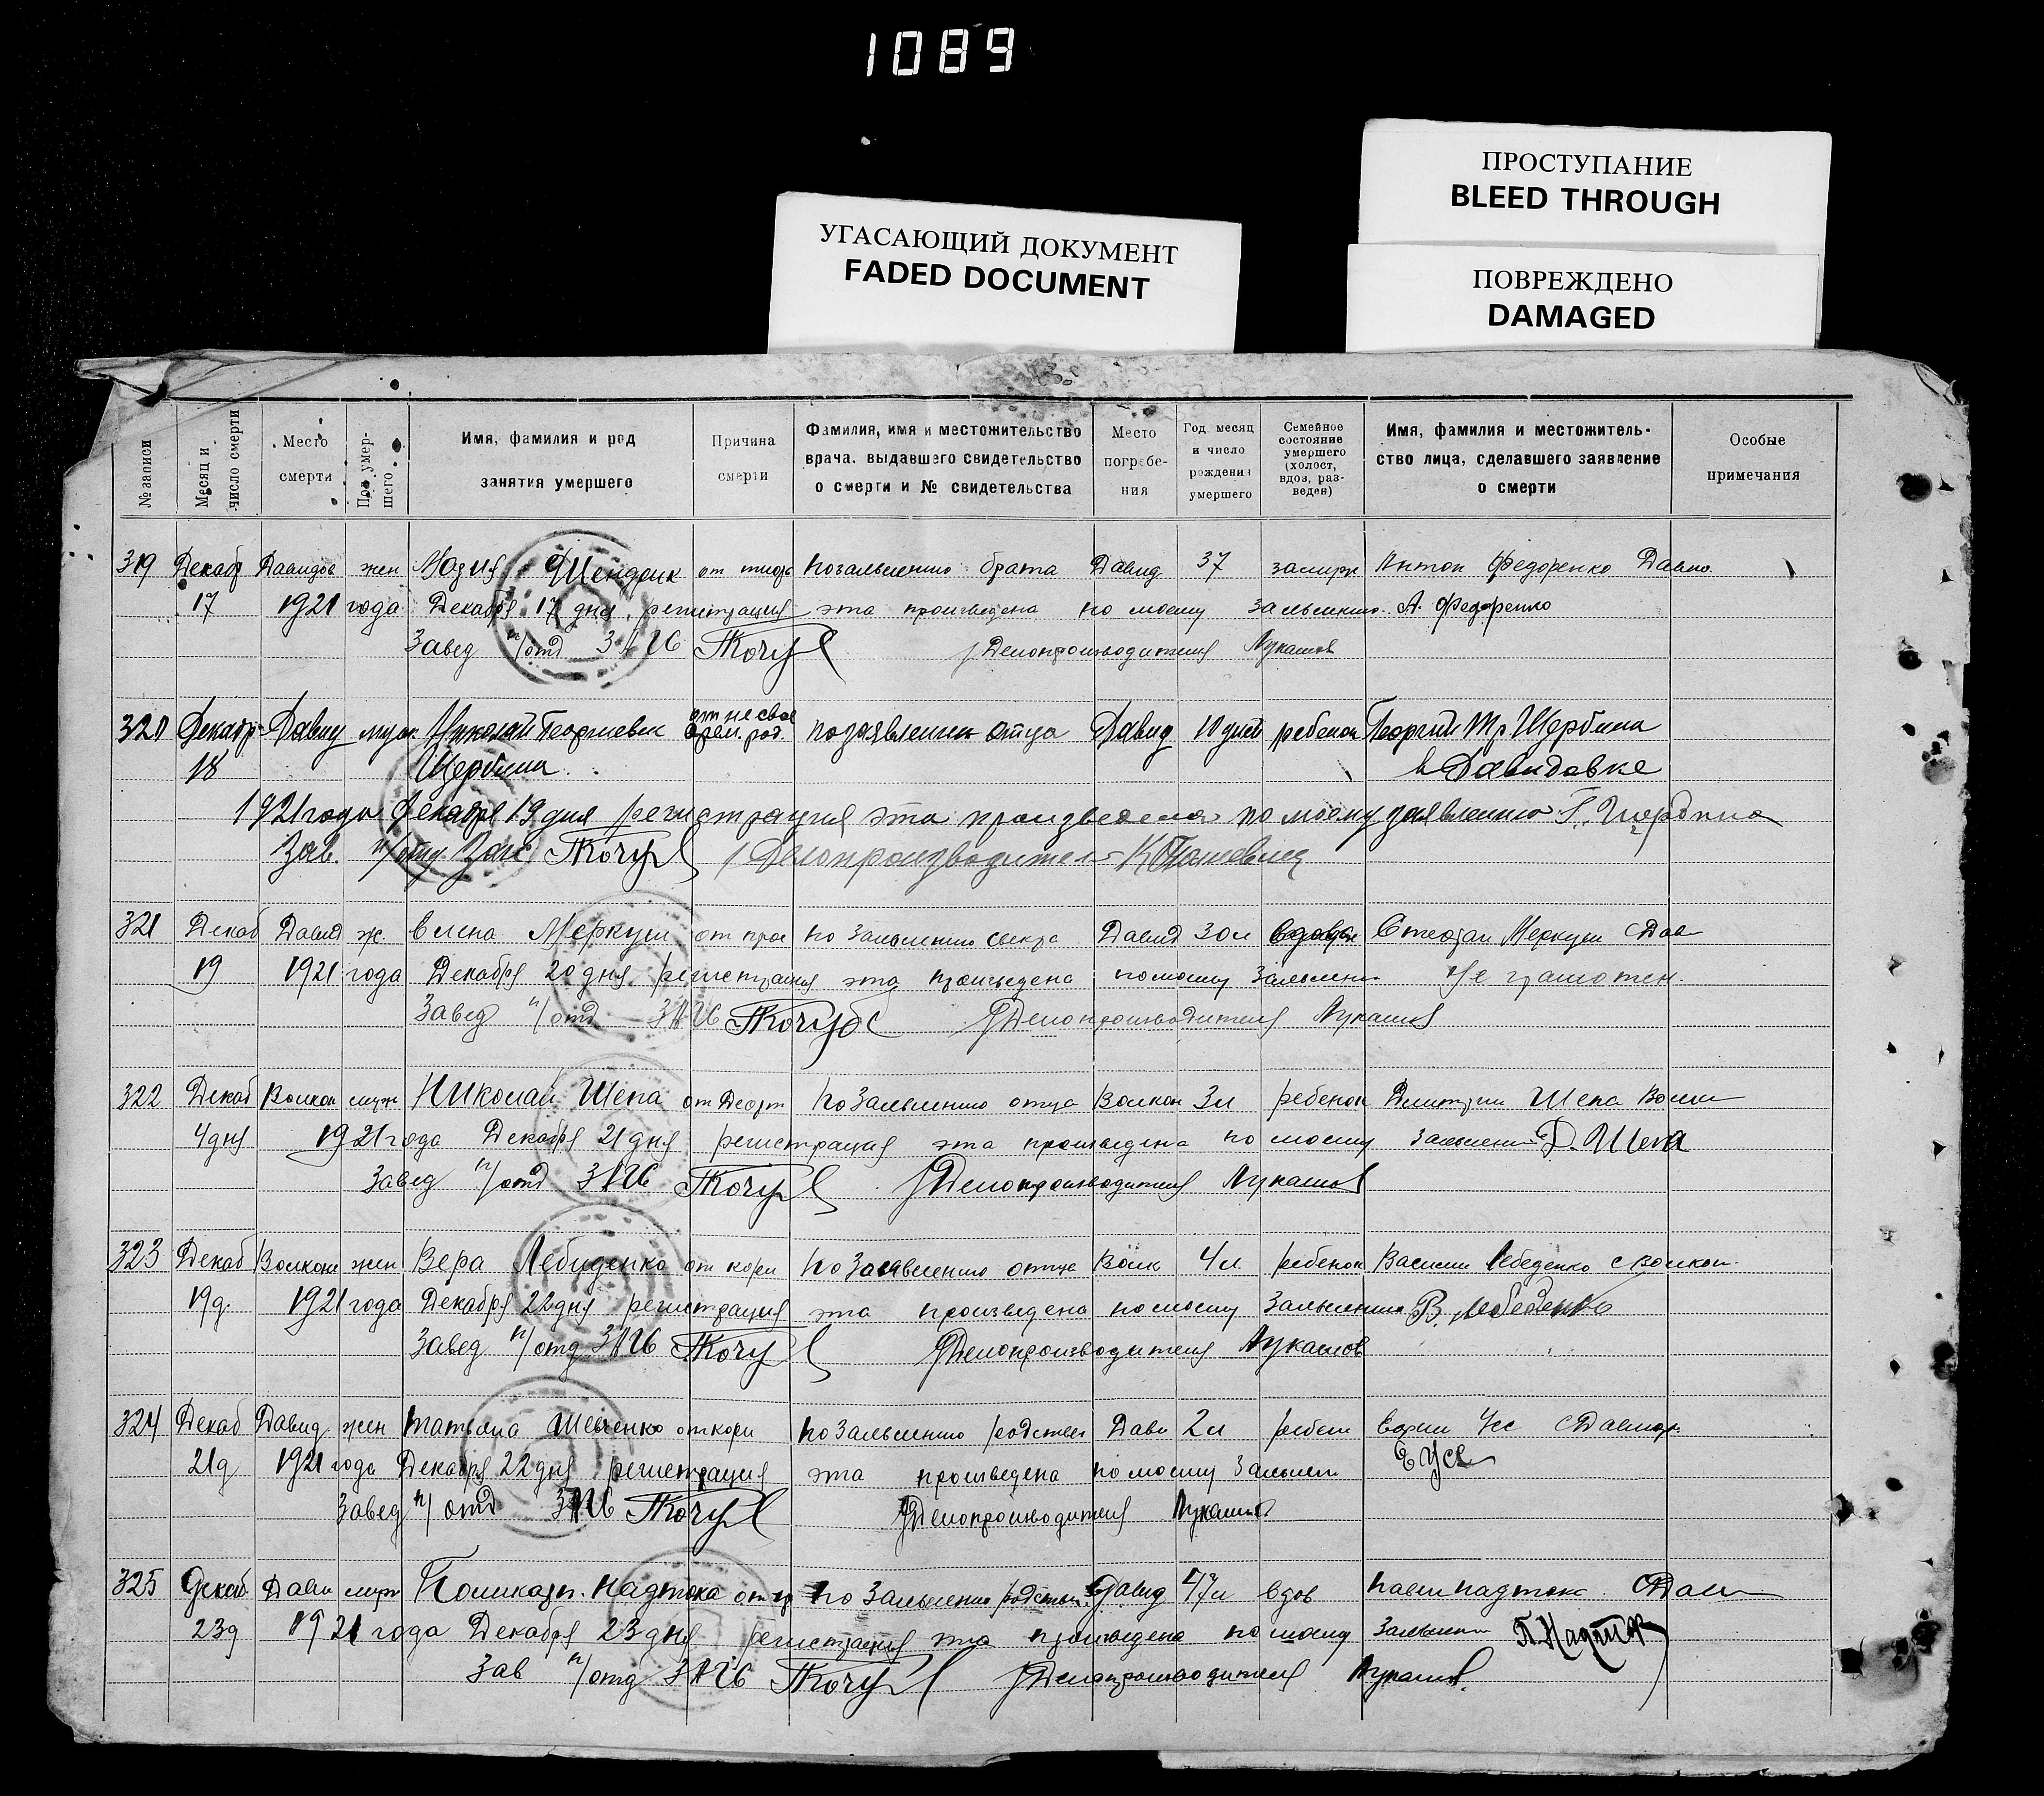 1089
ПРОСТУПАНИЕ
BLEED THROUGH
УГАСАЮЩИЙ ДОКУМЕНТ
FADED DOCUMENT
ПОВРЕЖДЕНО
DAMAGED
№ записи
Месяц и число смерти
Место смерти
Пол умер-шего
Имя, фамилия и род занятия умершего
Причина смерти
Фамилия, имя и местожительство врача, выдавшего свидетельство о смерти и № свидетельства
Место погребе-ния
Год, месяц и число рождения умершего
Семейное состояние умершего (холост, вдов, раз-веден)
Имя, фамилия и местожитель-ство лица, сделавшего заявление о смерти
Особые примечания
319 Декабр Давидов жен Мария Шендрик от по заявлению брата Давид 37 замуж Антон Федоренко Давид
17 1921 года Декабря 17 дня регистрация эта произведена по моему заявлению А. Федоренко
Завед п/отд ЗАГС Кочуб Делопроизводитель Лукашов
320 Декабр Давид муж Николай Георгиевич от не свое врем. род. по заявлению отца Давид 10 дней ребенок Георгий Тр Щербина
18 Щербина в Давидовке
1921 года Декабря 19 дня регистрация эта произведена по моему заявлению Г. Щербина
Зав. п/отд Загс Кочуб Делопроизводитель
321 Декаб Давид ж. Елена Меркуш от по заявлению свекра Давид 30 л вдова Стефан Меркуш с Дав
19 1921 года Декабря 20 дня регистрация эта произведена по моему заявлению Не грамотен.
Завед п/отд ЗАГС Кочуб Делопроизводитель Лукашов
322 Декаб Волкон муж Николай Шепа от по заявлению отца Волкон 3 л ребенок Дмитрий Шепа Волк
4 дня 1921 года Декабря 21 дня регистрация эта произведена по моему заявлению Д. Шепа
Завед п/отд ЗАГС Кочуб Делопроизводитель Лукашов
323 Декаб Волкон жен Вера Лебиденко от кори по заявлению отца Волк 4 л ребенок Василий Лебеденко с Волкон
19 д. 1921 года Декабря 22 дня регистрация эта произведена по моему заявлению В. Лебеденко
Завед п/отд ЗАГС Кочуб Делопроизводитель Лукашов
324 Декаб Давид жен Татьяна Шевченко от кори по заявлению родствен Дави 2 л ребен Усс с Давидов
21 д 1921 года Декабря 22 дня регистрация эта произведена по моему заявлен Е Усс
Завед п/отд ЗАГС Кочуб Делопроизводитель Лукашов
325 Декаб Дави муж Надтока от по заявлению родствен Давид 47 л вдов Павел Надтока с Дав
23 д 1921 года Декабря 23 дня регистрация эта произведена по моему заявлению П. Надтока
Зав п/отд ЗАГС Кочуб Делопроизводитель Лукашов.